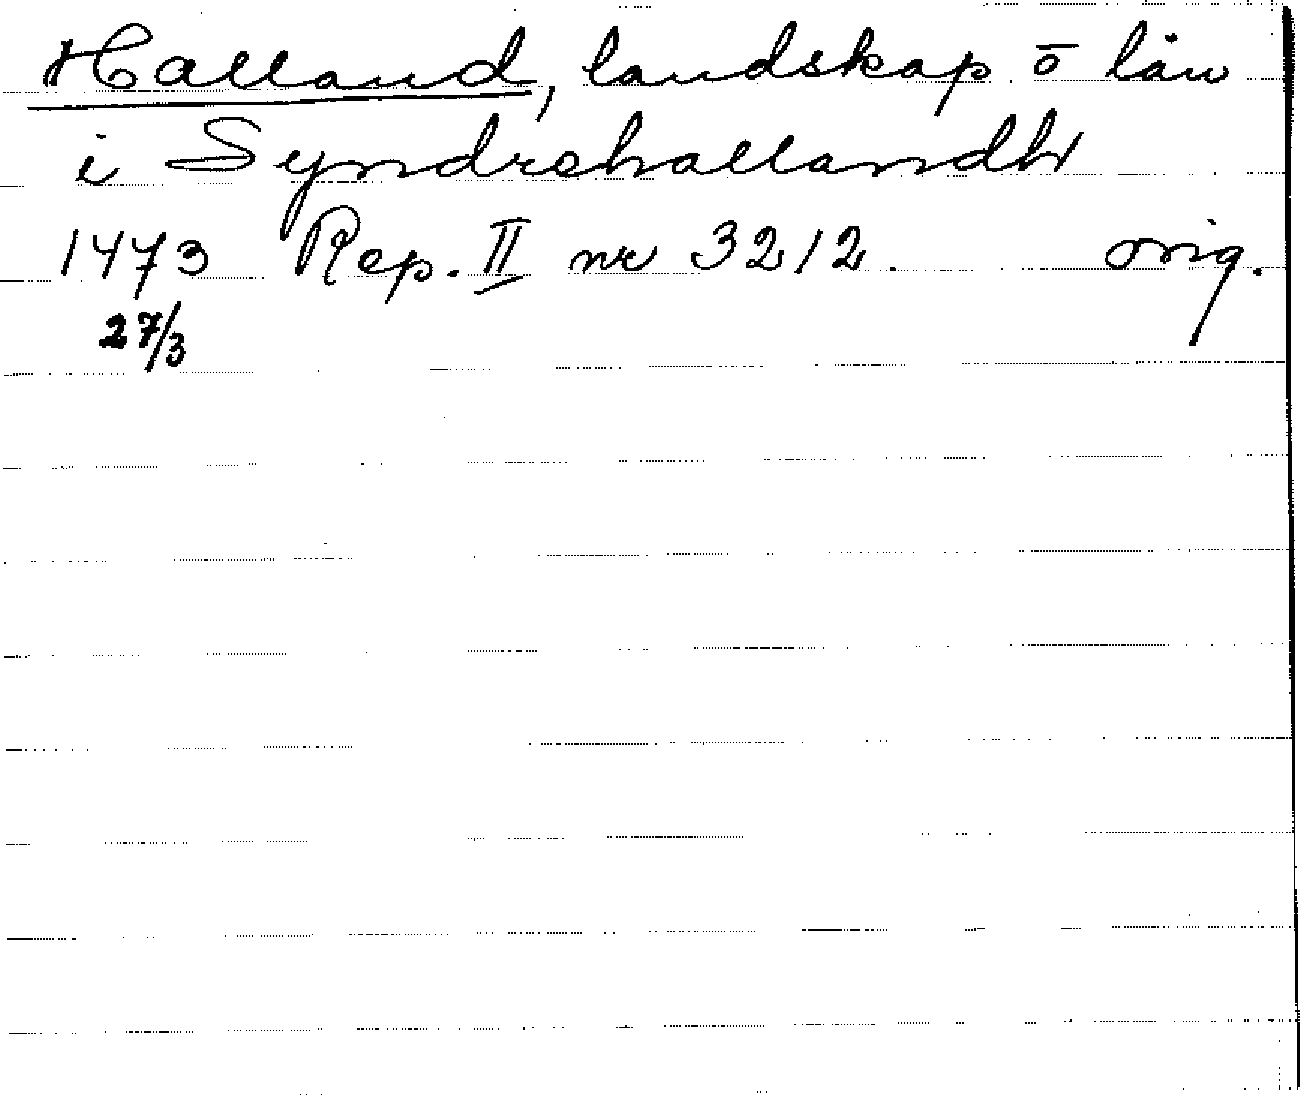 Halland, landskap o län
i Syndrehallandh
1473 Rep. II nr 3212. orig.
27/3